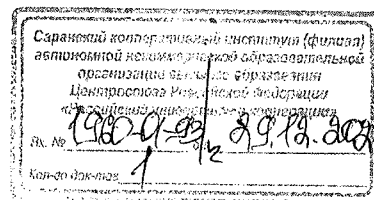 Саранский кооперативный институт (филиал)
автономной некоммерческой образовательной
организации высшего образования
Центросоюза Российской Федерации
«Российский университет кооперации»
Вх. № 29.12.
Кол-во док-тов 1